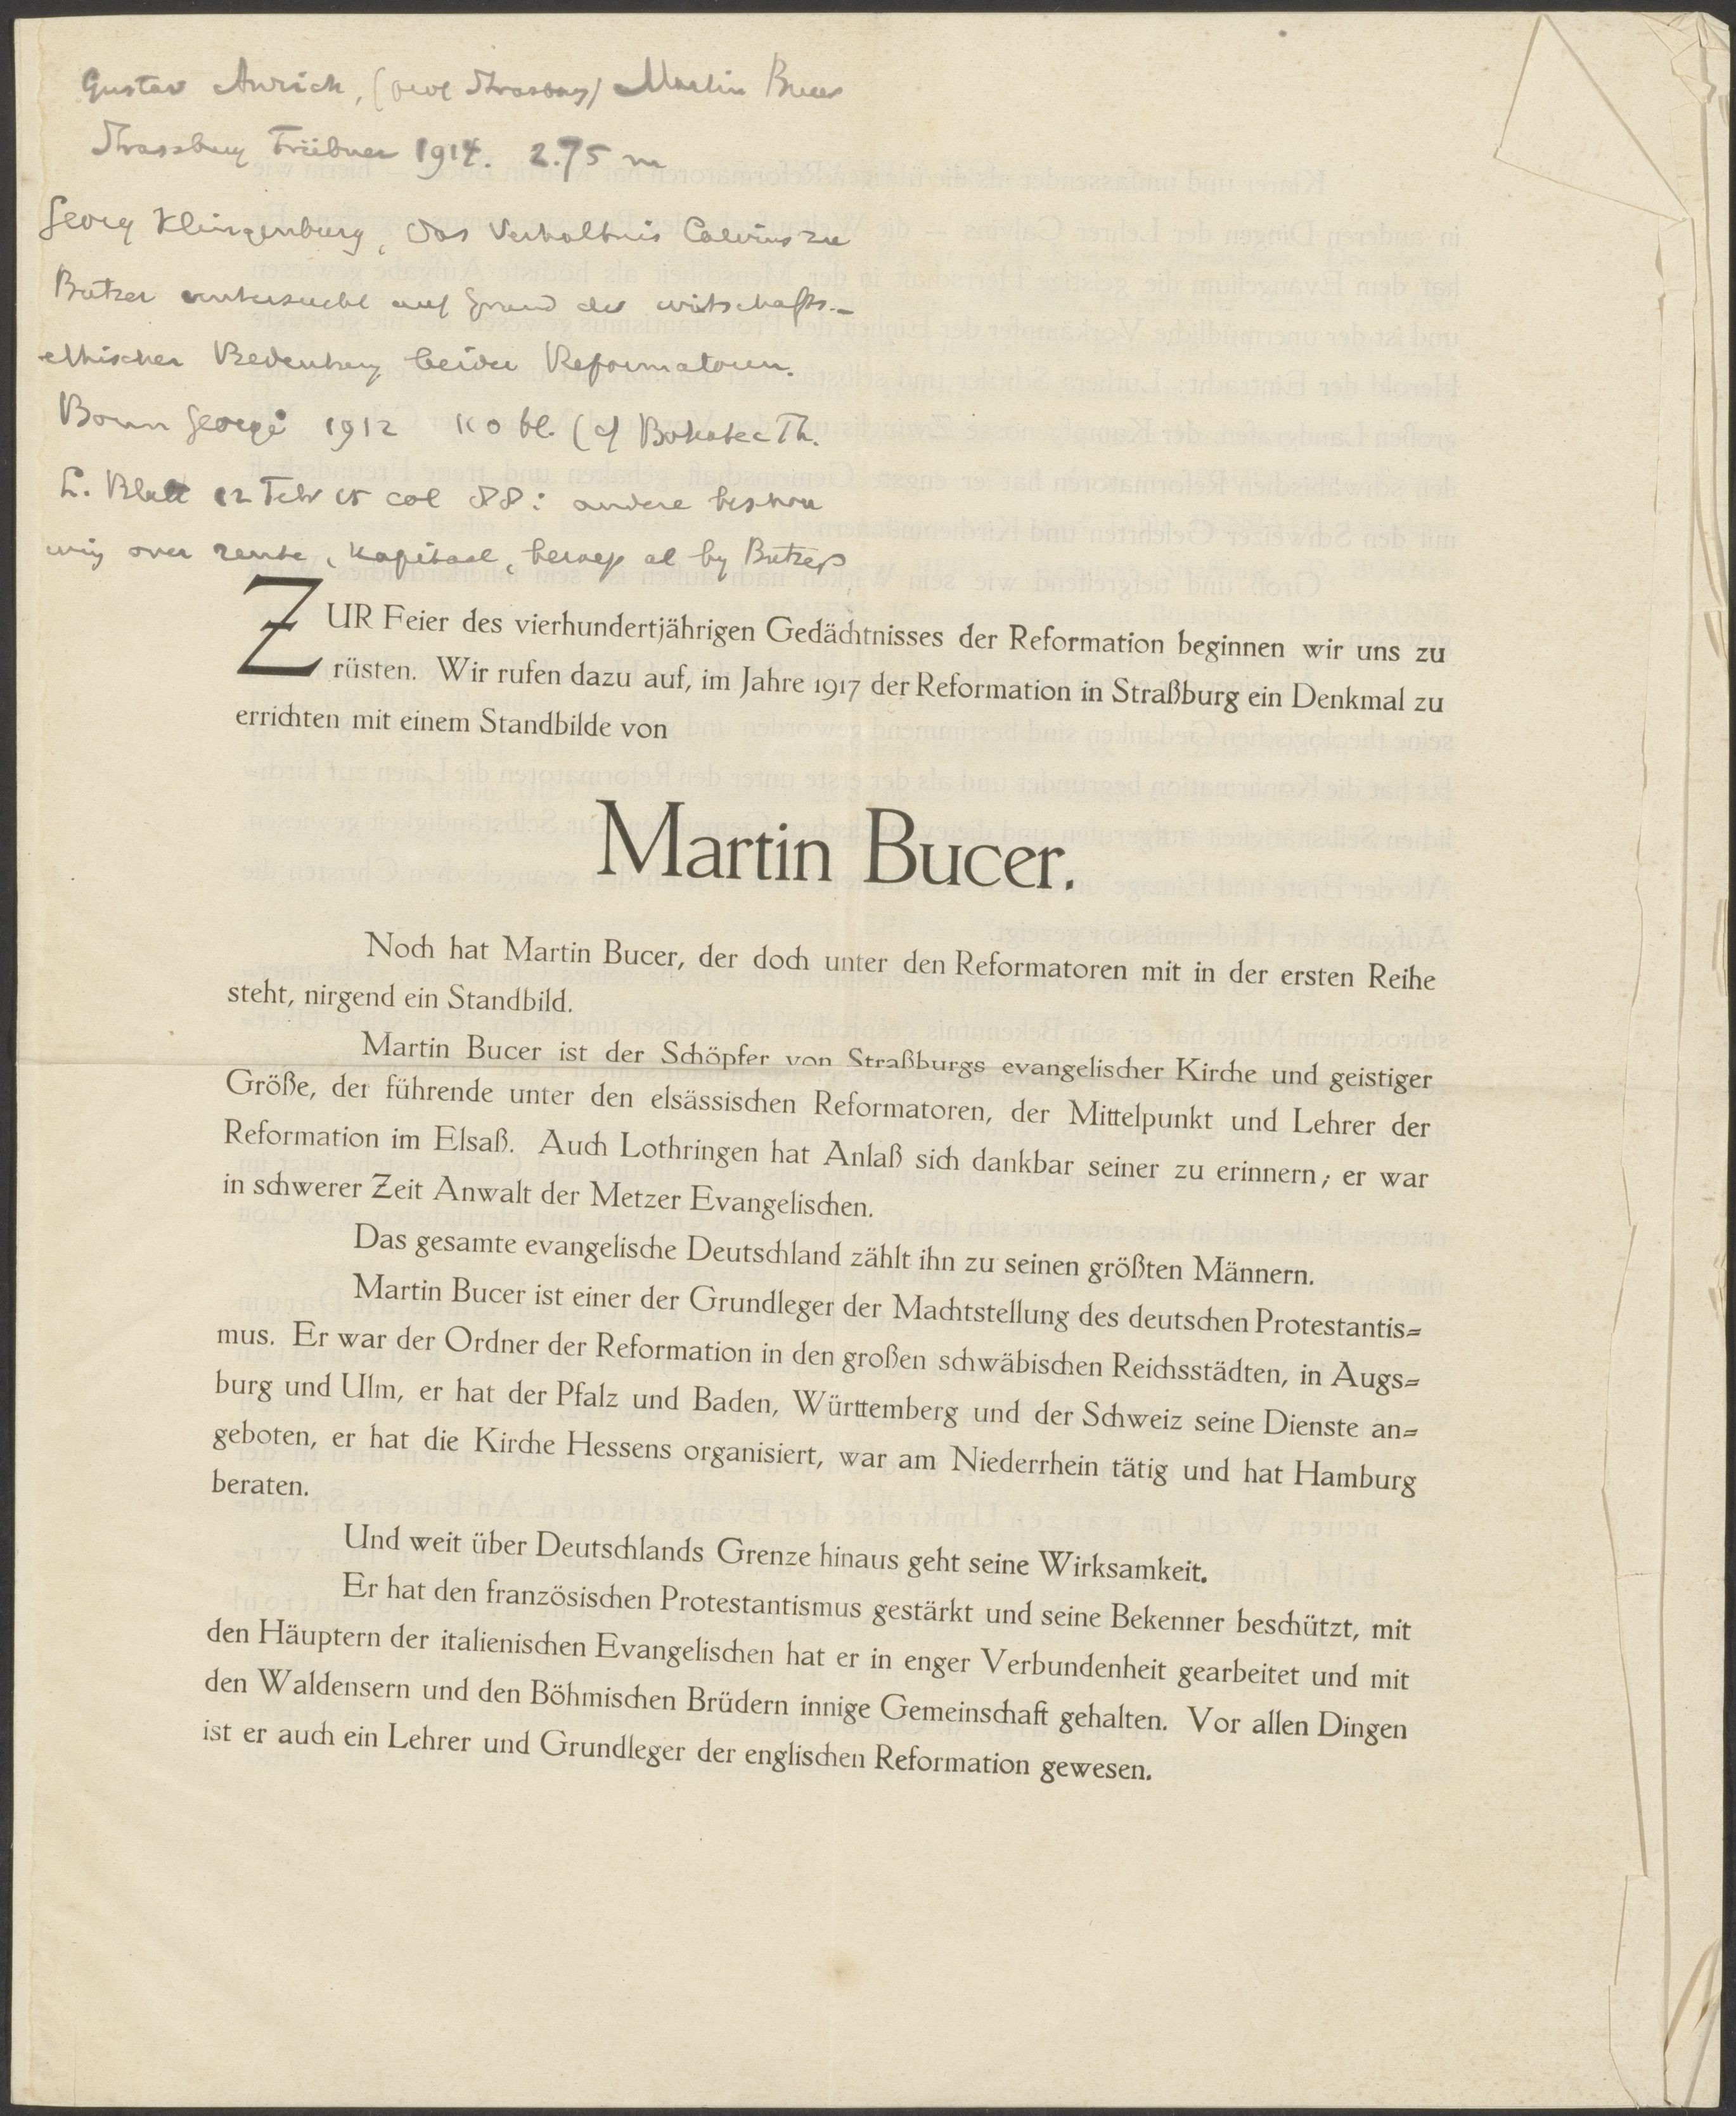 Gustav Anrich, (prof Strassburg) Martin Bucer
Strassburg Trübner 1914. 2.75 m
Georg Klingenburg, Das Verhaltnis Calvins zu
Butzer untersucht auf Grund der wirtschafts-
ethischen Bedeutung beider Reformatoren.
Bonn Georgi 1912 110 bl. (cf Bohatec Th.
L. Blatt 12 Febr 15 col 88: andere beschou
wing over rente, kapitaal, beroep al by Butzer
ZUR Feier des vierhundertjährigen Gedächtnisses der Reformation beginnen wir uns zu
rüsten. Wir rufen dazu auf, im Jahre 1917 der Reformation in Straßburg ein Denkmal zu
errichten mit einem Standbilde von
Martin Bucer.
Noch hat Martin Bucer, der doch unter den Reformatoren mit in der ersten Reihe
steht, nirgend ein Standbild.
Martin Bucer ist der Schöpfer von Straßburgs evangelischer Kirche und geistiger
Größe, der führende unter den elsässischen Reformatoren, der Mittelpunkt und Lehrer der
Reformation im Elsaß. Auch Lothringen hat Anlaß sich dankbar seiner zu erinnern; er war
in schwerer Zeit Anwalt der Metzer Evangelischen.
Das gesamte evangelische Deutschland zählt ihn zu seinen größten Männern.
Martin Bucer ist einer der Grundleger der Machtstellung des deutschen Protestantis=
mus. Er war der Ordner der Reformation in den großen schwäbischen Reichsstädten, in Augs=
burg und Ulm, er hat der Pfalz und Baden, Württemberg und der Schweiz seine Dienste an=
geboten, er hat die Kirche Hessens organisiert, war am Niederrhein tätig und hat Hamburg
beraten.
Und weit über Deutschlands Grenze hinaus geht seine Wirksamkeit.
Er hat den französischen Protestantismus gestärkt und seine Bekenner beschützt, mit
den Häuptern der italienischen Evangelischen hat er in enger Verbundenheit gearbeitet und mit
den Waldensern und den Böhmischen Brüdern innige Gemeinschaft gehalten. Vor allen Dingen
ist er auch ein Lehrer und Grundleger der englischen Reformation gewesen.